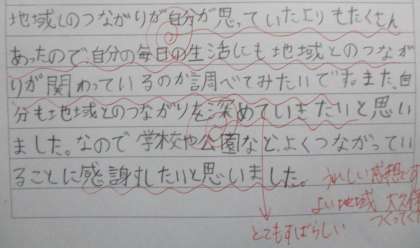 地域とのつながりが自分が思っていたよりもたくさん
あったので、自分の毎日の生活にも地域とのつなが
りが関わっているのか調べてみたいです。また、自
分も地域とのつながりを深めていきたいと思い
ました。なので学校や公園など、よくつながってい
ることに感謝したいと思いました。
うれしい感想です
よい地域
つくって
とてもすばらしい